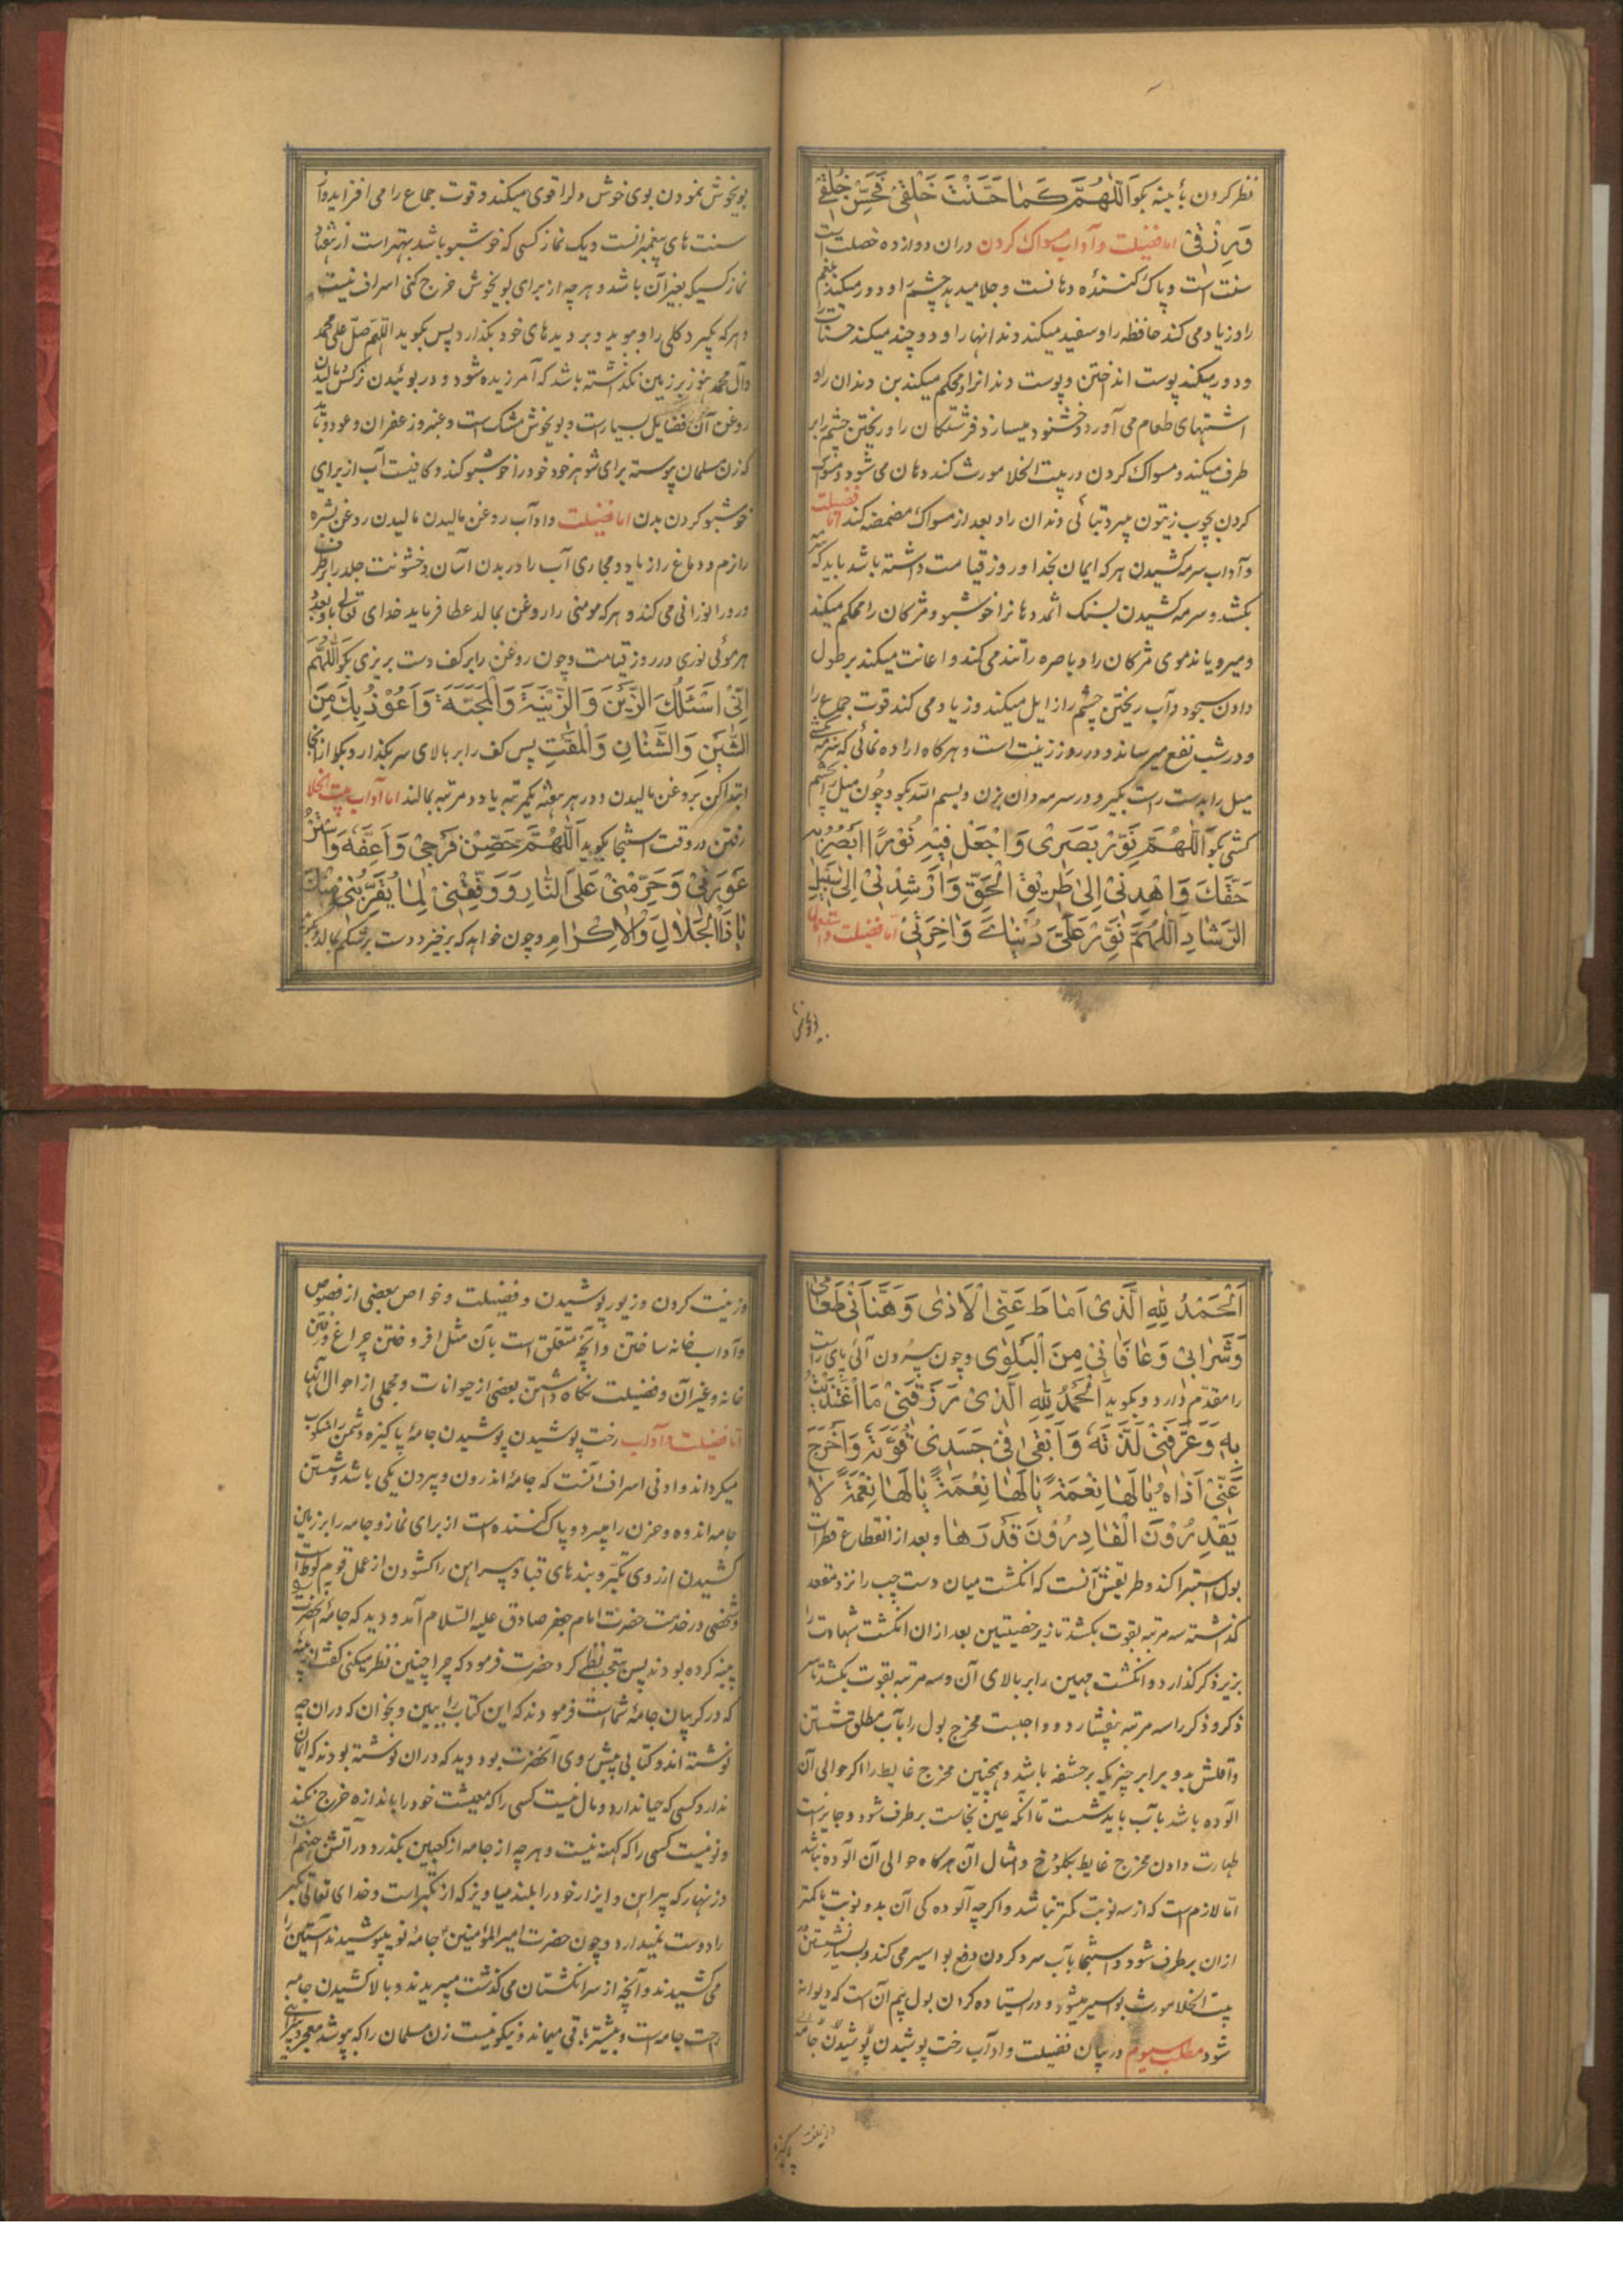 نظر کردن بآینه بکو اَللّٰهُمَّ کَمٰا حَسَّنْتَ خَلْقی فَحَسِّنْ خُلْقی
وَرِزْقی اما فضیلت و آداب مسواک کردن دران دوازده خصلت است
سنت است و پاک کننده دهانست و جلا میدهد چشم را و دور میکند بلغم
را و زیاد می کند حافظه را و سفید میکند دندانها را و دو چند میکند حسنات را
و دور میکند پوست انداختن و پوست دندانرا و محکم میکند بن دندان را و
اشتهای طعام می آورد و خشنود میسازد فرشتکان را و ریختن چشم را بر
طرف میکند و مسواک کردن در بیت الخلا مورث کند دهان می شود و مسواک
کردن بچوب زیتون میبرد تبائی دندان را و بعد از مسواک مضمضه کند اما فضیلت
و آداب سرمه کشیدن هرکه ایمان بخدا و روز قیامت داشته باشد باید که سرمه
بکشد و سرمه کشیدن بسنک اثمد دهانرا خوشبو و مژکان را محکم میکند
و میرویاند موی مژکان را و باصره را تند می کند و اعانت میکند بر طول
دادن سجود و آب ریختن چشم را زایل میکند و زیاد می کند قوت جماع را
و در شب نفع میرساند و در روز زینت است و هرکاه اراده نمائی که سرمه بکشی
میل را بدست راست بکیر و در سرمه دان بزن و بسم الله بکو و چون میل بچشم
کشی بکو اَللّٰهُمَّ نَوِّرْ بَصَری وَاجْعَلْ فیهِ نُوْرًا اَبْصُرُ بِهِ
حَقَّکَ وَاهْدِنی اِلیٰ طَریقِ الْحَقِّ وَاَرْشِدْنی اِلیٰ سَبیلِ
الرَّشٰادِ اَللّٰهُمَّ نَوِّرْ عَلَیَّ دُنْیٰایَ وَاٰخِرَتی اما فضیلت و استعمال
بویخوش نمودن بوی خوش دلرا قوی میکند و قوت جماع را می افزاید و از
سنت های پیغمبرانست و یک نماز کسی که خوشبو باشد بهتر است از هفتاد
نماز کسیکه بغیر آن باشد و هرچه از برای بویخوش خرج کنی اسراف نیست
و هرکه بکیرد کلی را و ببوید و بر دیدهای خود بکذارد پس بکوید اللهم صل علی محمد
وآل محمد هنوز بر زمین نکذاشته باشد که آمرزیده شود و در بوئیدن نرکس و مالیدن
روغن آن فضایل بسیار است و بویخوش مشک است و عنبر و زعفران و عود و باید
که زن مسلمان پیوسته برای شوهر خود خود را خوشبو کند و کافیست آب از برای
خوشبو کردن بدن اما فضیلت و اداب روغن مالیدن مالیدن روغن بشره
را نرم و دماغ را زیاد و مجاری آب را در بدن آسان و خشونت جلد را برطرف
و رو را نورانی می کند و هرکه مومنی را روغن بمالد عطا فرماید خدای تعالی باو بعدد
هر موئی نوری در روز قیامت و چون روغن را بر کف دست بریزی بکو اَللّٰهُمَّ
اِنّی اَسْئَلُکَ الزَّیْنَ وَالزّینَةَ وَالْمَحَبَّةَ وَاَعُوْذُ بِکَ مِنَ
الشَّیْنِ وَالشَّنَاٰنِ وَالْمَقْتِ پس کف را بر بالای سر بکذار و بکو از آنجا
ابتدا کن بروغن مالیدن و در هر هفته یکمرتبه یا دو مرتبه بمالند اما آداب بیت الخلا
رفتن در وقت استنجا بکوید اَللّٰهُمَّ حَصِّنْ فَرْجی وَاَعِفَّهُ وَاسْتُرْ
عَوْرَتی وَحَرِّمْنی عَلَی النّٰارِ وَوَفِّقْنی لِمٰا یُقَرِّبُنی مِنْکَ
یٰا ذَاالْجَلاٰلِ وَالْاِکْرٰامِ و چون خواهد که برخیزد دست بر شکم بمالد و بکوید
بویخوش
اَلْحَمْدُ لِلّٰهِ الَّذی اَمٰاطَ عَنِّی الْاَذیٰ وَهَنَّاَنی طَعٰامی
وَشَرٰابی وَعٰافٰانی مِنَ الْبَلْویٰ و چون بیرون آئی پای راست
را مقدم دارد و بکوید اَلْحَمْدُ لِلّٰهِ الَّذی رَزَقَنی مَا اغْتَذَیْتُ
بِهِ وَعَرَّفَنی لَذَّتَهُ وَاَبْقیٰ فی جَسَدی قُوَّتَهُ وَاَخْرَجَ
عَنّی اَذٰاهُ یٰا لَهٰا نِعْمَةً یٰا لَهٰا نِعْمَةً یٰا لَهٰا نِعْمَةً لاٰ
یَقْدِرُوْنَ الْقٰادِرُوْنَ قَدْرَهٰا و بعد از انقطاع قطرات
بول استبرا کند و طریقش آنست که انکشت میان دست چپ را نزد مقعد
کذاشته سه مرتبه بقوت بکشد تا زیر خصیتین بعد ازان انکشت شهادت را
بزیر ذکر کذارد و انکشت مهین را بر بالای آن و سه مرتبه بقوت بکشد تا سر
ذکر و ذکر را سه مرتبه بیفشارد و واجبست مخرج بول را بآب مطلق شستن
و اقلش بدو برابر چیزیکه بر حشفه باشد و همچنین مخرج غایط را اکر حوالی آن
آلوده باشد بآب باید شست تا آنکه عین نجاست برطرف شود و جایز است
طهارت دادن مخرج غایط بکلوخ و امثال آن هرکاه حوالی آن آلوده نباشد
اما لازم است که از سه نوبت کمتر نباشد و اکرچه آلوده کی آن بدو نوبت یا کمتر
ازان برطرف شود و استنجا بآب سرد کردن دفع بواسیر می کند و بسیار نشستن در
بیت الخلا مورث بواسیر میشود و در ایستاده کردن بول بیم آن است که دیوانه
شود مطلب سیوم در بیان فضیلت و اداب رخت پوشیدن پوشیدن جامهای
وزینت کردن و زیور پوشیدن و فضیلت و خواص بعضی از فصوص
و آداب خانه ساختن و آنچه متعلق است بآن مثل افروختن چراغ و رفتن
خانه و غیر آن و فضیلت نکاه داشتن بعضی از حیوانات و مجملی از احوال آنها
اما فضیلت و آداب رخت پوشیدن پوشیدن جامهٔ پاکیزه دشمن را منکوب
میکرداند و ادنی اسراف آنست که جامهٔ اندرون و بیرون یکی باشد و شستن
جامه اندوه و حزن را میبرد و پاک کننده است از برای نماز و جامه را بر زمین
کشیدن ازروی تکبر و بندهای قبا و پیراهن را کشودن از عمل قوم لوط است
و شخصی در خدمت حضرت امام جعفر صادق علیه السلام آمد و دید که جامهٔ آنحضرت را
پینه کرده بودند پس بتعجب نظر کرد حضرت فرمود که چرا چنین نظر میکنی کفت از پینهٔ
که در کریبان جامهٔ شماست فرمودند که این کتاب را ببین و بخوان که دران چه
نوشته اند و کتابی پیش روی آنحضرت بود دید که دران نوشته بودند که ایمان
ندارد کسی که حیا ندارد و مال نیست کسی را که معیشت خود را باندازه خرج نکند
و نو نیست کسی را که کهنه نیست و هرچه از جامه از کعبین بکذرد در آتش جهنم است
و زنهار که پیراهن و ایزار خود را بلند میاویز که از تکبر است و خدای تعالی تکبر
را دوست نمیدارد و چون حضرت امیرالمؤمنین جامهٔ نو میپوشیدند آستین را
می کشیدند و آنچه از سر انکشتان می کذشت میبریدند و بالا کشیدن جامه
راحت جامه است و بیشتر باقی میماند و نیکو نیست زن مسلمان را که بپوشد معجر و پیراهنی
پاکیزه